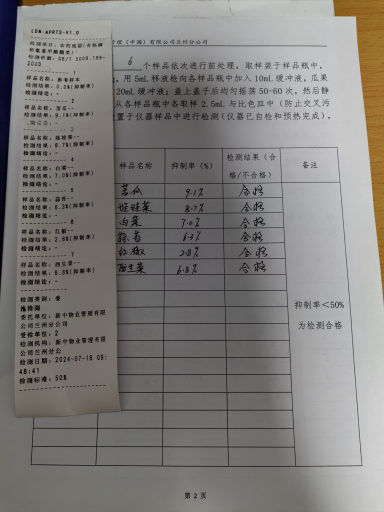 LDA-APRTS-V1.0
检测项目：农药残留(有机磷
和氨基甲酸酯类)
检测依据：GB/T 5009.199-
2003
样品名称：参考样本
检测结果：0.0%(抑制率)
检测结论：-
样品名称：苦瓜--
检测结果：9.1%(抑制率)
检测结论：-
样品名称：娃娃菜--
检测结果：8.7%(抑制率)
检测结论：-
4
样品名称：白菜--
检测结果：7.0%(抑制率)
检测结论：-
5
样品名称：蒜苔--
检测结果：6.3%(抑制率)
检测结论：-
6
样品名称：红椒--
检测结果：2.8%(抑制率)
检测结论：-
7
样品名称：西生菜--
检测结果：6.8%(抑制率)
检测结论：-
检测类别：委
托检测
委托单位：新中物业管理有限
公司兰州分公司
受检单位：2
检测机构：新中物业管理有限
公司兰州分公
检测日期：2024-07-18 09:
48:41
检测标准：50%
管理（中国）有限公司兰州分公司
6 个样品依次进行前处理，取样装于样品瓶中，
用 5mL 移液枪向各样品瓶中加入 10mL 缓冲液，瓜果
20mL 缓冲液；盖上盖子后均匀摇荡 50-60 次。然后静
从各样品瓶中各取样 2.5mL 与比色皿中（防止交叉污
置于仪器样品中进行检测（仪器已自检和预热完成）。
样品名称 抑制率（%） 检测结果（合格/不合格） 备注
苦瓜 9.1% 合格
娃娃菜 8.7% 合格
白菜 7.0% 合格
蒜苔 6.3% 合格
红椒 2.8% 合格
西生菜 6.8% 合格
抑制率＜50%
为检测合格
第 2 页